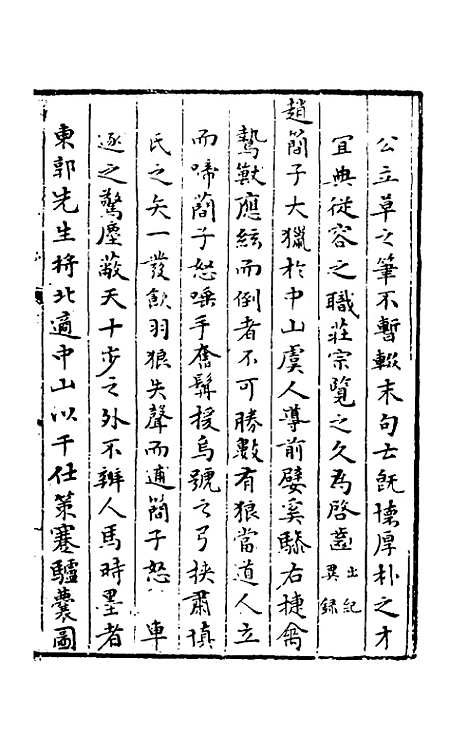 公立草之筆不暫輟末句士既懷厚朴之才
宜典從容之職莊宗覽之久為啓齒出紀異錄
趙簡子大獵於中山虞人導前嬖奚驂右捷禽
鷙獸應絃而倒者不可勝數有狼當道人立
而啼簡子怒唾手奮髯援烏號之弓挟肅慎
氏之矢一發飲羽狼失聲而逋簡子怒 車
逐之驚塵蔽天十步之外不辨人馬時墨者
東郭先生將北適中山以干仕策蹇驢囊圖